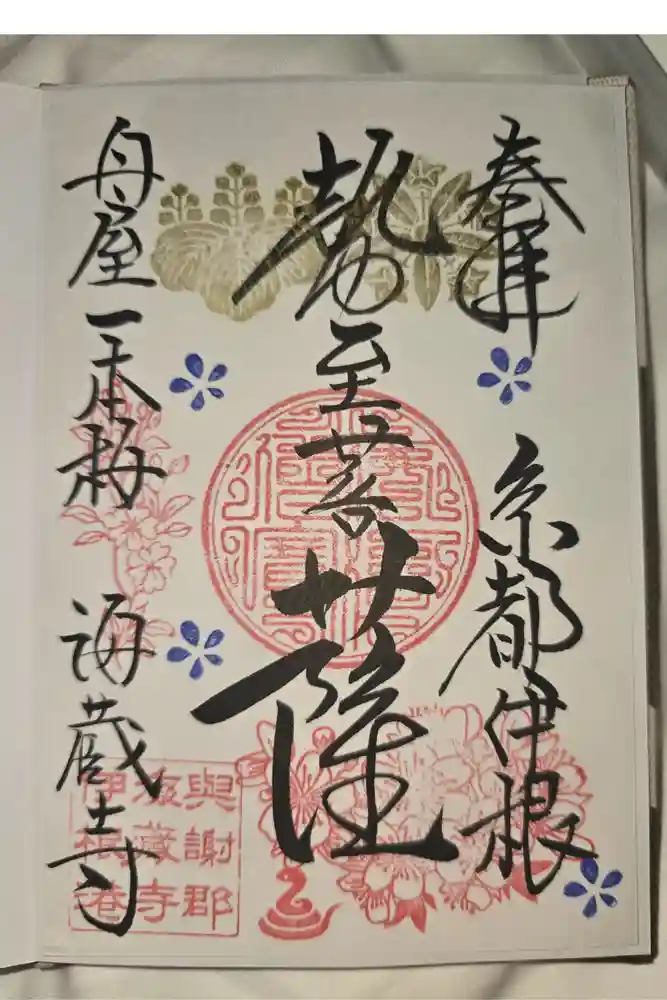 奉拝
京都伊根
勢至菩薩
舟屋一本梅
海蔵寺
與謝郡
海藏寺
伊根港